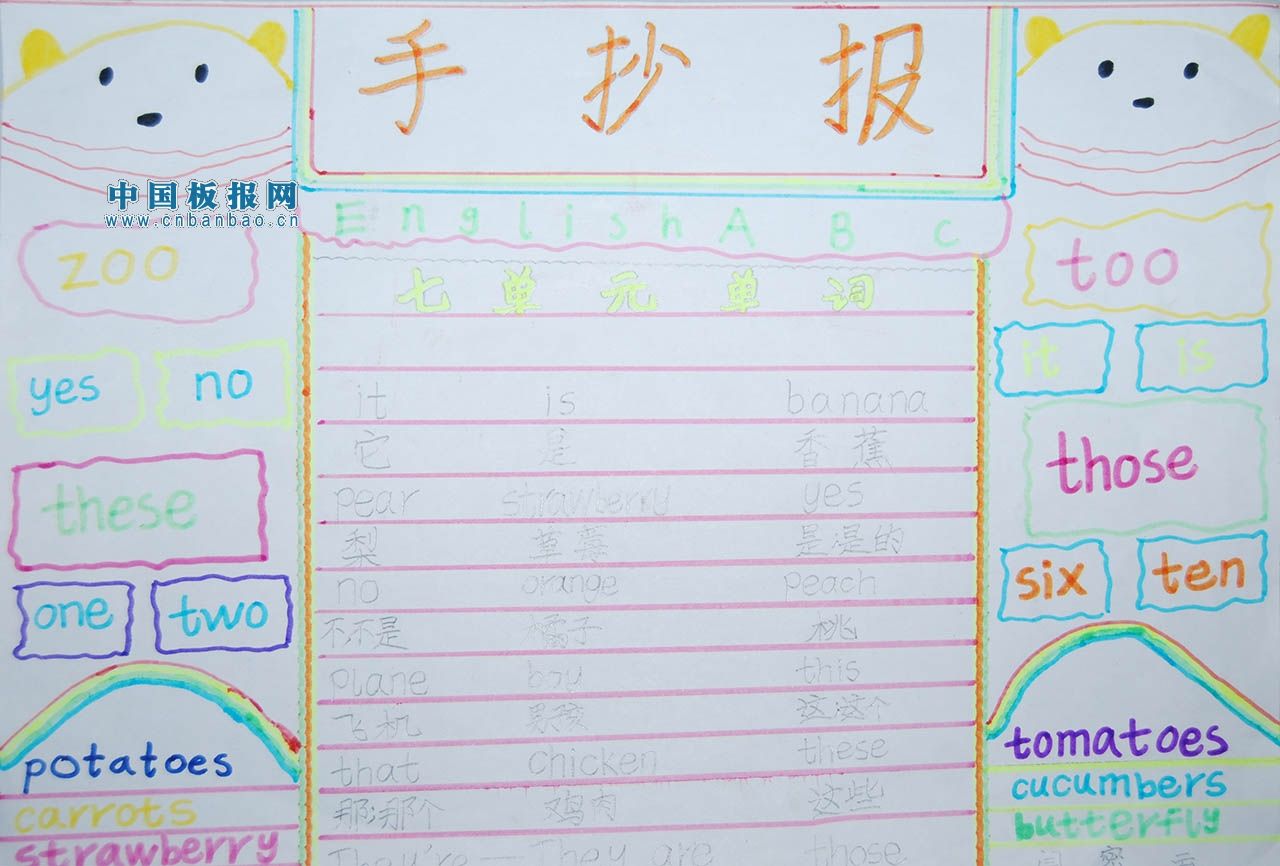 手抄报
中国板报网
www.cnbanbao.cn
English ABc
zoo
too
七单元单词
yes no
it is
it is banana
它 是 香蕉
these
those
pear strawberry yes
梨 草莓 是是的
one two
six ten
no orange peach
不不是 橘子 桃
plane boy this
飞机 男孩 这这个
potatoes
tomatoes
that chicken these
carrots
cucumbers
那那个 鸡肉 这些
strawberry
butterfly
They're — They are those